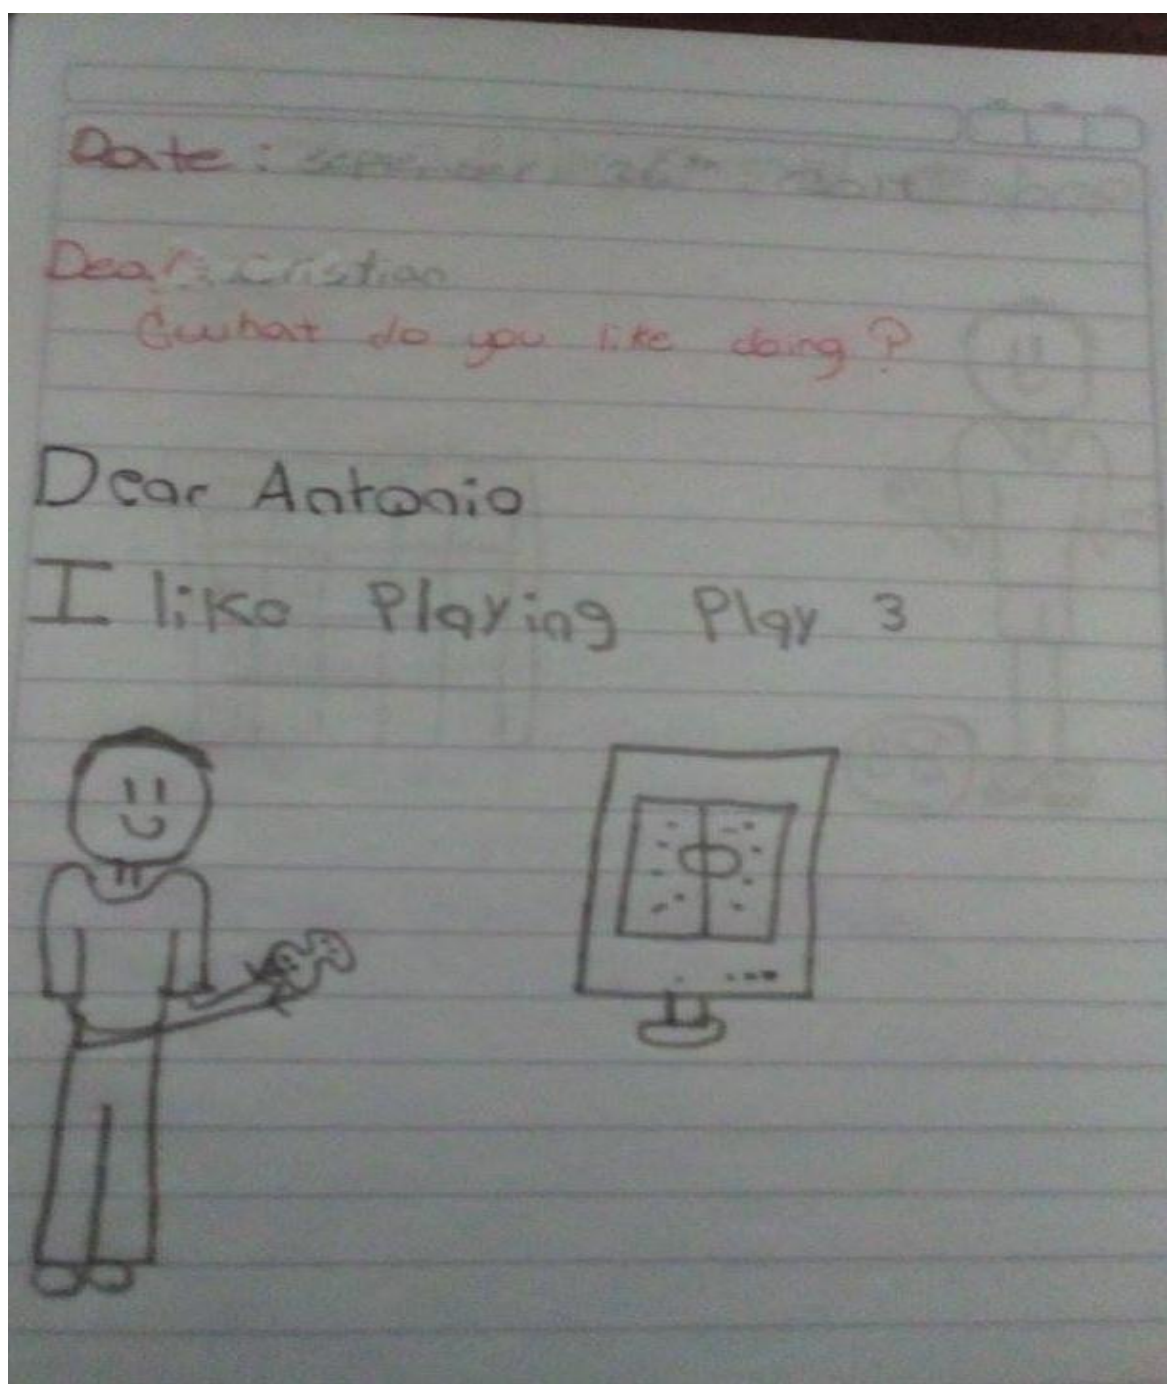 Date: September 26th 2014
Dear: Cristian
¿what do you like doing?
Dear Antonio
I like Playing Play 3